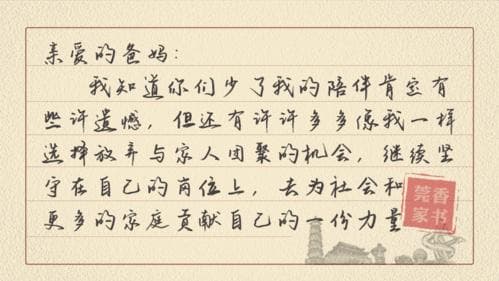 亲爱的爸妈：
我知道你们少了我的陪伴肯定有
些许遗憾，但还有许许多多像我一样
选择放弃与家人团聚的机会，继续坚
守在自己的岗位上，去为社会和
更多的家庭贡献自己的一份力量
莞香
家书